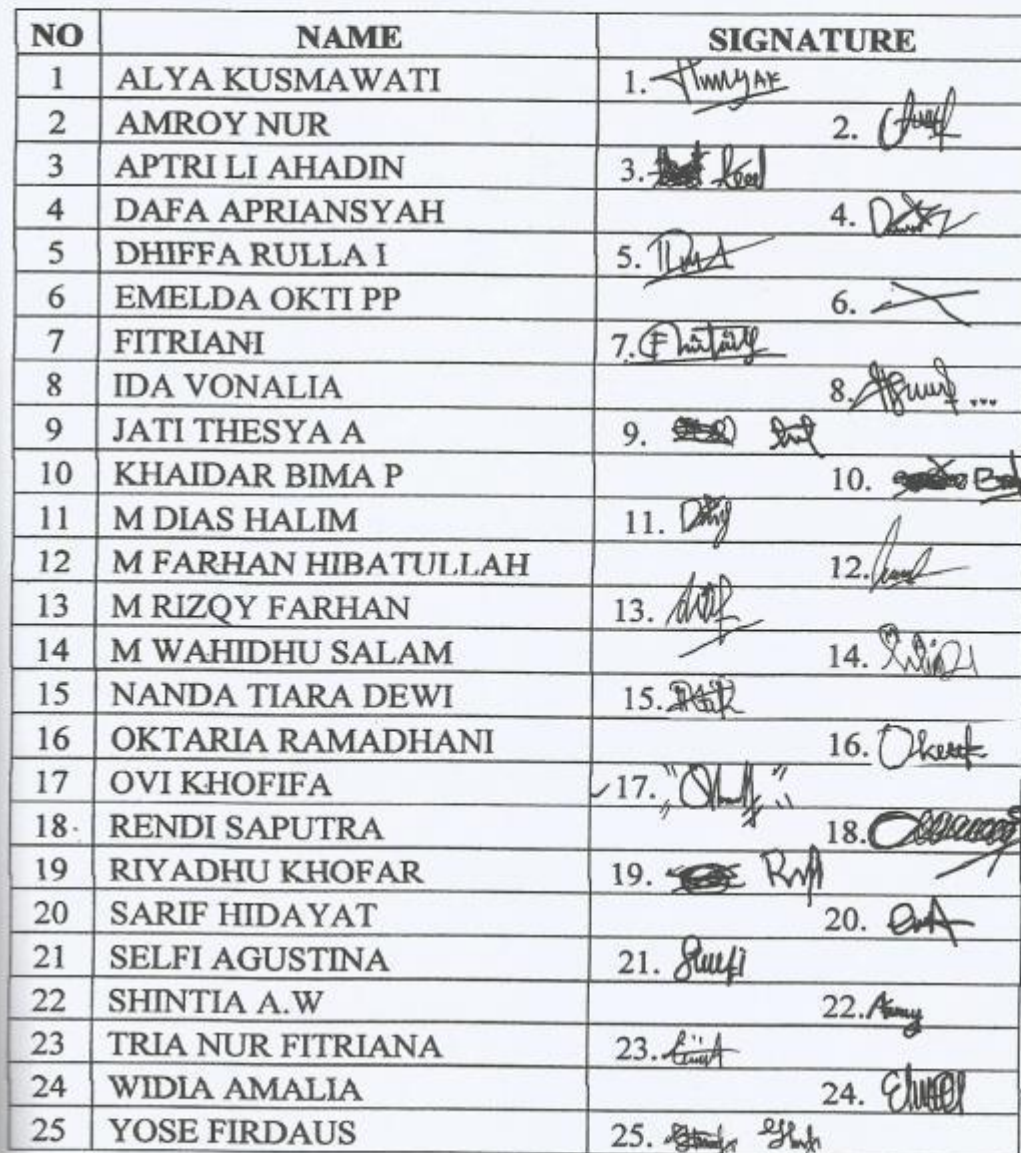 NO NAME SIGNATURE
1 ALYA KUSMAWATI 1.
2 AMROY NUR 2.
3 APTRI LI AHADIN 3.
4 DAFA APRIANSYAH 4.
5 DHIFFA RULLA I 5.
6 EMELDA OKTI PP 6.
7 FITRIANI 7.
8 IDA VONALIA 8.
9 JATI THESYA A 9.
10 KHAIDAR BIMA P 10.
11 M DIAS HALIM 11.
12 M FARHAN HIBATULLAH 12.
13 M RIZQY FARHAN 13.
14 M WAHIDHU SALAM 14.
15 NANDA TIARA DEWI 15.
16 OKTARIA RAMADHANI 16.
17 OVI KHOFIFA 17.
18 RENDI SAPUTRA 18.
19 RIYADHU KHOFAR 19.
20 SARIF HIDAYAT 20.
21 SELFI AGUSTINA 21.
22 SHINTIA A.W 22.
23 TRIA NUR FITRIANA 23.
24 WIDIA AMALIA 24.
25 YOSE FIRDAUS 25.